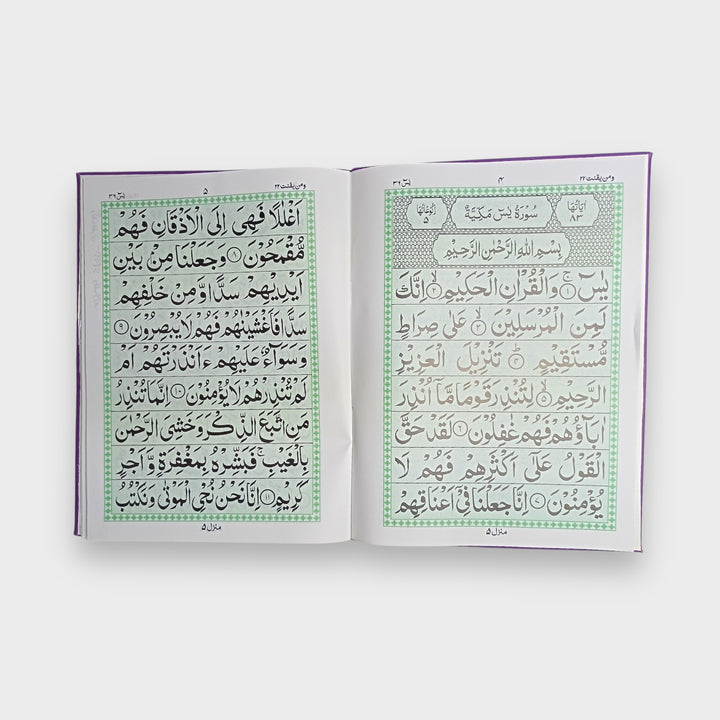 ومن یقنت ۲۲
۴
یٰسٓ ۳۶
اٰیَاتُهَا ۸۳
سُوْرَةُ یٰسٓ مَكِّیَّةٌ
رُكُوْعَاتُهَا ۵
بِسْمِ اللّٰهِ الرَّحْمٰنِ الرَّحِیْمِ
یٰسٓ ۚ﴿۱﴾ وَالْقُرْاٰنِ الْحَكِیْمِ ۙ﴿۲﴾ اِنَّكَ
لَمِنَ الْمُرْسَلِیْنَ ۙ﴿۳﴾ عَلٰی صِرَاطٍ
مُّسْتَقِیْمٍ ؕ﴿۴﴾ تَنْزِیْلَ الْعَزِیْزِ
الرَّحِیْمِ ۙ﴿۵﴾ لِتُنْذِرَ قَوْمًا مَّاۤ اُنْذِرَ
اٰبَآؤُهُمْ فَهُمْ غٰفِلُوْنَ ﴿۶﴾ لَقَدْ حَقَّ
الْقَوْلُ عَلٰۤی اَكْثَرِهِمْ فَهُمْ لَا
یُؤْمِنُوْنَ ﴿۷﴾ اِنَّا جَعَلْنَا فِیْۤ اَعْنَاقِهِمْ
منزل ۵
ومن یقنت ۲۲
۵
یٰسٓ ۳۶
اَغْلٰلًا فَهِیَ اِلَی الْاَذْقَانِ فَهُمْ
مُّقْمَحُوْنَ ﴿۸﴾ وَجَعَلْنَا مِنْۢ بَیْنِ
اَیْدِیْهِمْ سَدًّا وَّمِنْ خَلْفِهِمْ
سَدًّا فَاَغْشَیْنٰهُمْ فَهُمْ لَا یُبْصِرُوْنَ ﴿۹﴾
وَسَوَآءٌ عَلَیْهِمْ ءَاَنْذَرْتَهُمْ اَمْ
لَمْ تُنْذِرْهُمْ لَا یُؤْمِنُوْنَ ﴿۱۰﴾ اِنَّمَا تُنْذِرُ
مَنِ اتَّبَعَ الذِّكْرَ وَخَشِیَ الرَّحْمٰنَ
بِالْغَیْبِ ۚ فَبَشِّرْهُ بِمَغْفِرَةٍ وَّاَجْرٍ
كَرِیْمٍ ﴿۱۱﴾ اِنَّا نَحْنُ نُحْیِ الْمَوْتٰی وَنَكْتُبُ
منزل ۵